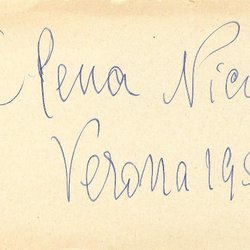 Elena Nic
Verona 19